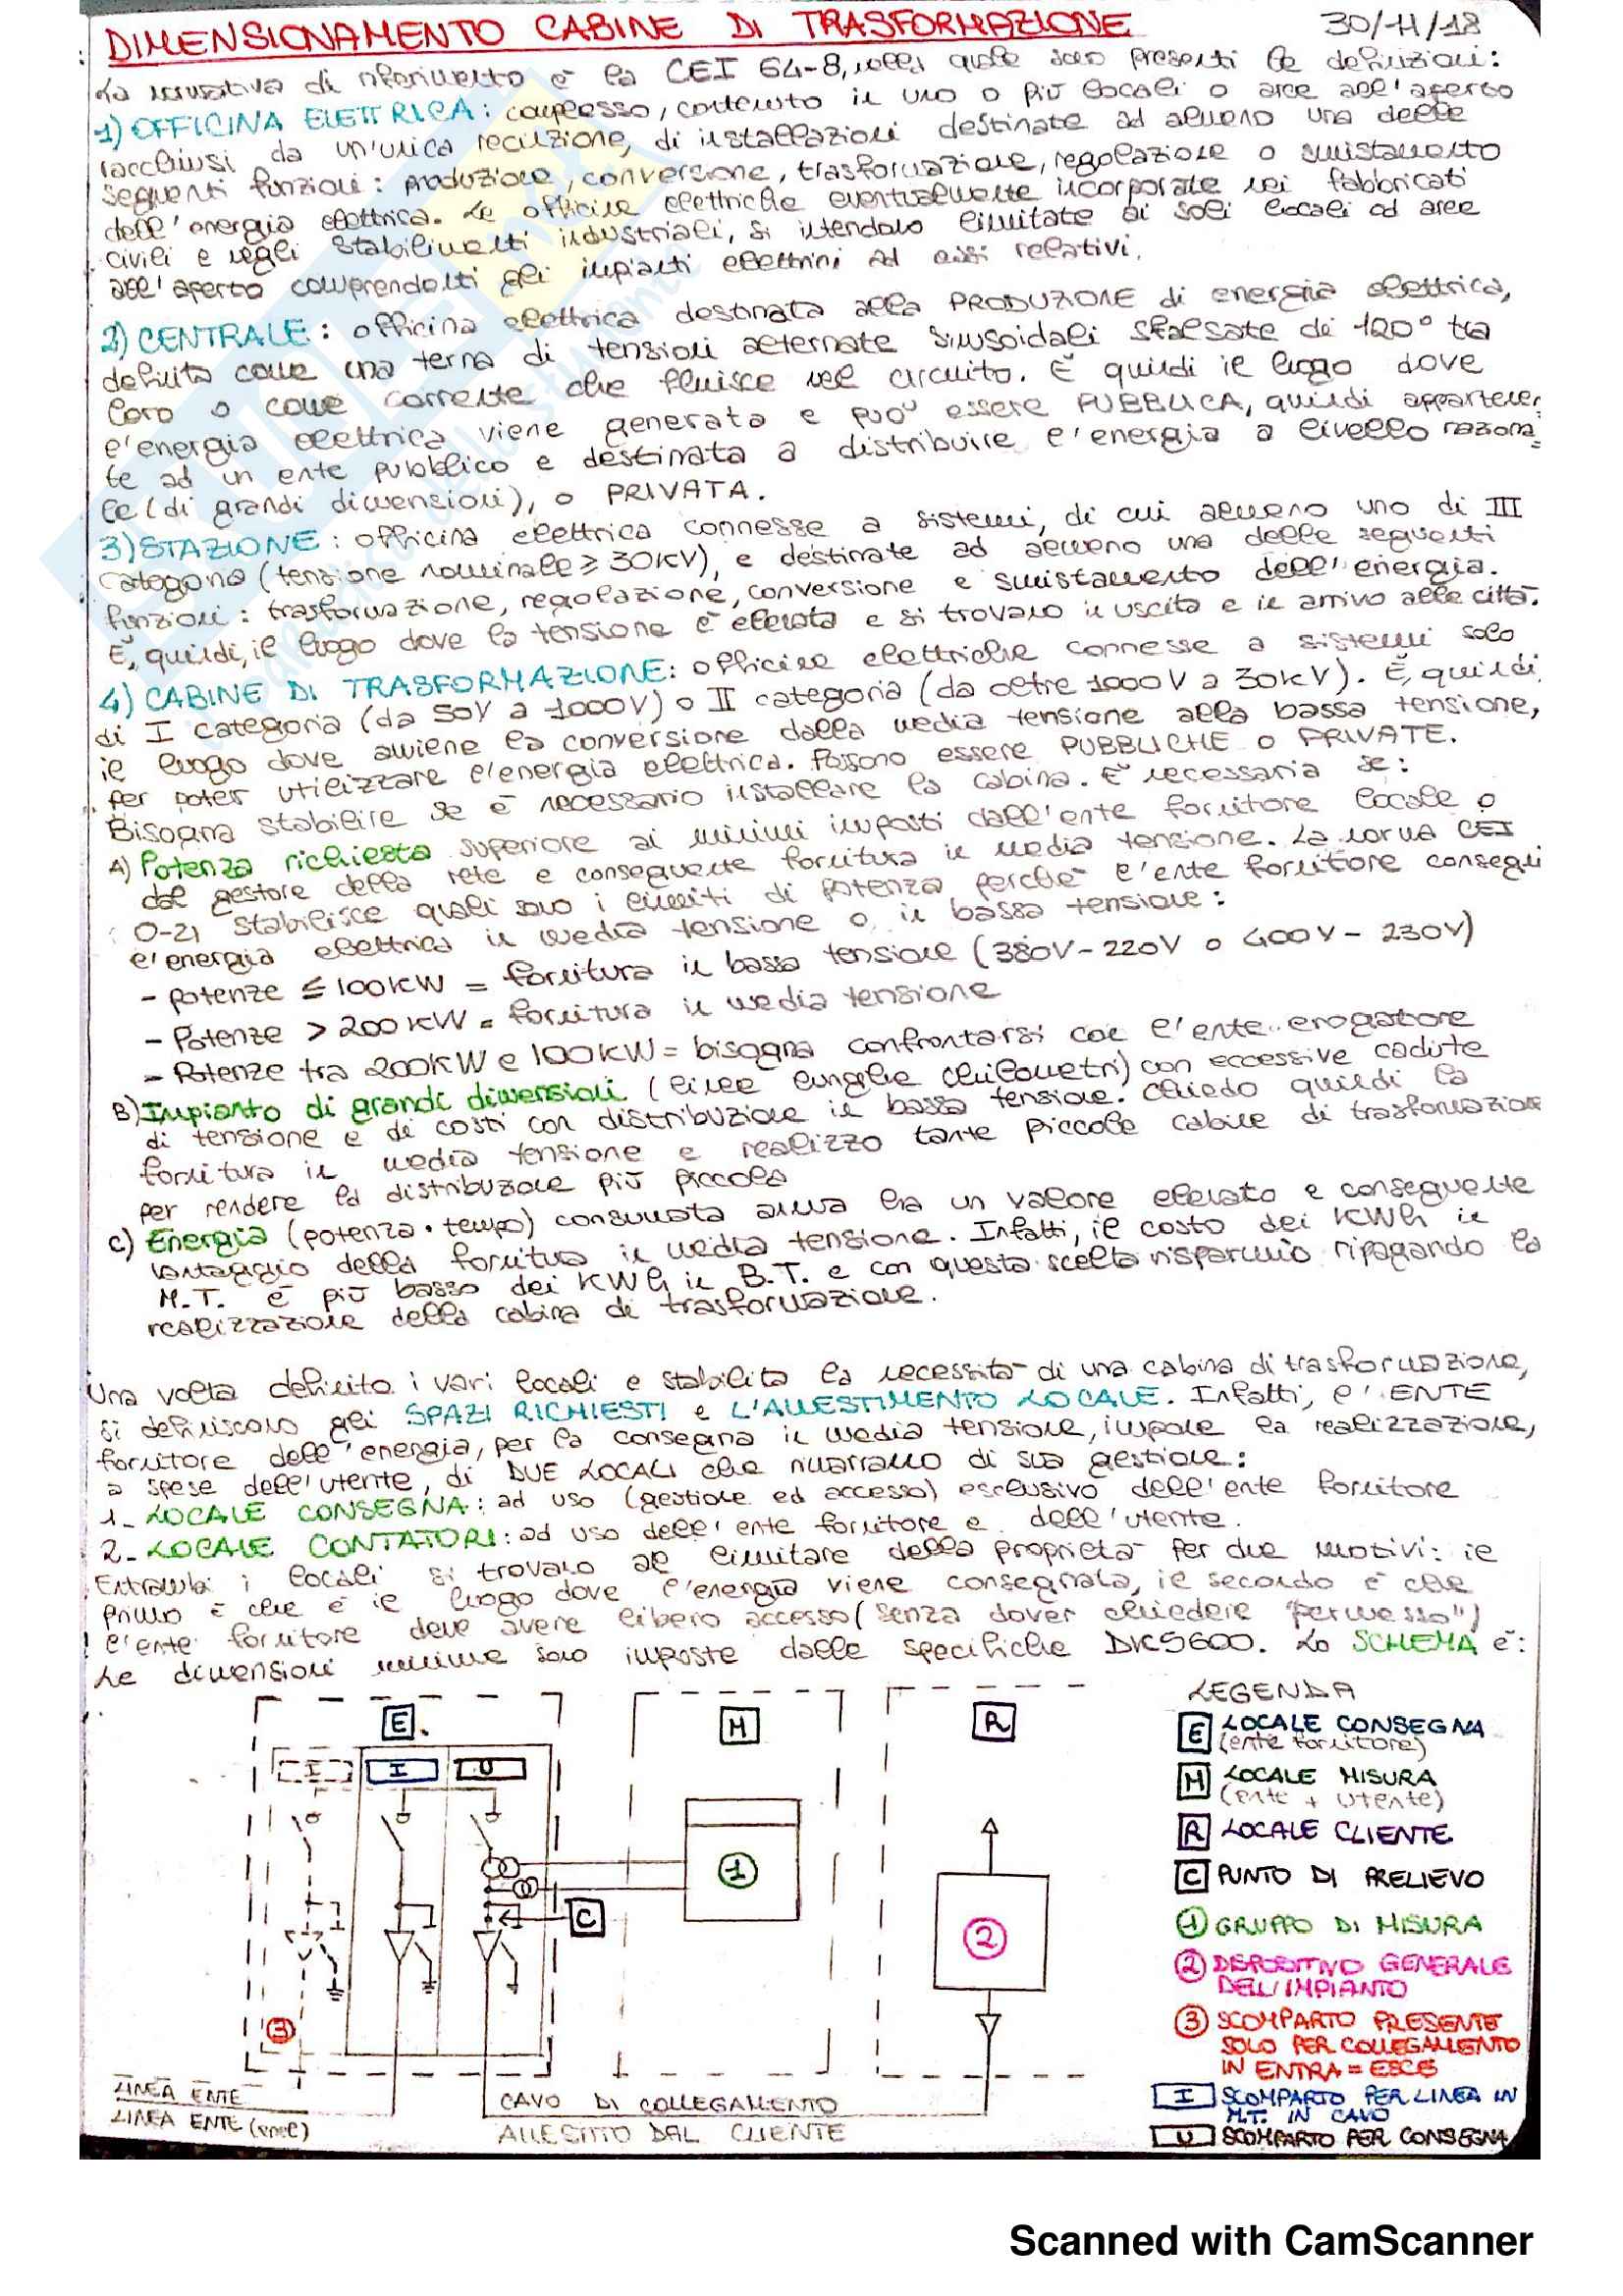 DIMENSIONAMENTO CABINE DI TRASFORMAZIONE 30/11/18
La normativa di riferimento è la CEI 64-8, nella quale sono presenti le definizioni:
1) OFFICINA ELETTRICA: complesso, contenuto in uno o più locali o aree all'aperto
racchiusi da un'unica recinzione, di installazioni destinate ad almeno una delle
seguenti funzioni: produzione, conversione, trasformazione, regolazione o smistamento
dell'energia elettrica. Le officine elettriche eventualmente incorporate nei fabbricati
civili e negli stabilimenti industriali, si intendono limitate ai soli locali ed aree
all'aperto comprendenti gli impianti elettrini ad essi relativi.
2) CENTRALE: officina elettrica destinata alla PRODUZIONE di energia elettrica,
definita come una terna di tensioni alternate sinusoidali sfalsate di 120° tra
loro o come corrente che fluisce nel circuito. È quindi il luogo dove
l'energia elettrica viene generata e può essere PUBBLICA, quindi appartenen
te ad un ente pubblico e destinata a distribuire l'energia a livello naziona=
le (di grandi dimensioni), o PRIVATA.
3) STAZIONE: officina elettrica connesse a sistemi, di cui almeno uno di III
categoria (tensione nominale ≥ 30KV), e destinate ad almeno una delle seguenti
funzioni: trasformazione, regolazione, conversione e smistamento dell'energia.
È, quindi, il luogo dove la tensione è elevata e si trovano in uscita e in arrivo alle città.
4) CABINE DI TRASFORMAZIONE: officine elettriche connesse a sistemi solo
di I categoria (da 50V a 1000V) o II categoria (da oltre 1000V a 30KV). È, quindi,
il luogo dove avviene la conversione dalla media tensione alla bassa tensione,
per poter utilizzare l'energia elettrica. Possono essere PUBBLICHE o PRIVATE.
Bisogna stabilire se è necessario installare la cabina. È necessaria se:
A) Potenza richiesta superiore ai minimi imposti dall'ente fornitore locale o
dal gestore della rete e conseguente fornitura in media tensione. La norma CEI
0-21 stabilisce quali sono i limiti di potenza perché l'ente fornitore consegni
l'energia elettrica in media tensione o in bassa tensione:
- potenze ≤ 100KW = fornitura in bassa tensione (380V-220V o 400V-230V)
- Potenze > 200KW = fornitura in media tensione
- Potenze tra 200KW e 100KW = bisogna confrontarsi con l'ente erogatore
B) Impianto di grandi dimensioni (linee lunghe chilometri) con eccessive cadute
di tensione e di costi con distribuzione in bassa tensione. Chiedo quindi la
fornitura in media tensione e realizzo tante piccole cabine di trasformazione
per rendere la distribuzione più piccola
C) Energia (potenza · tempo) consumata annua ha un valore elevato e conseguente
vantaggio della fornitura in media tensione. Infatti, il costo dei KWh in
M.T. è più basso dei KWh in B.T. e con questa scelta risparmio ripagando la
realizzazione della cabina di trasformazione.
Una volta definito i vari locali e stabilito la necessità di una cabina di trasformazione,
si definiscono gli SPAZI RICHIESTI e L'ALLESTIMENTO LOCALE. Infatti, l'ENTE
fornitore dell'energia, per la consegna in media tensione, impone la realizzazione,
a spese dell'utente, di DUE LOCALI che rimarranno di sua gestione:
1- LOCALE CONSEGNA: ad uso (gestione ed accesso) esclusivo dell'ente fornitore
2- LOCALE CONTATORI: ad uso dell'ente fornitore e dell'utente.
Entrambi i locali si trovano al limitare della proprietà per due motivi: il
primo è che è il luogo dove l'energia viene consegnata, il secondo è che
l'ente fornitore deve avere libero accesso (senza dover chiedere "permesso")
Le dimensioni minime sono imposte dalle specifiche DK5600. Lo SCHEMA è:
E. M R
I I U
1
C
2
3
LINEA ENTE
LINEA ENTE (enel)
CAVO DI COLLEGAMENTO
ALLESTITO DAL CLIENTE
LEGENDA
E LOCALE CONSEGNA
(ente fornitore)
M LOCALE MISURA
(ente + utente)
R LOCALE CLIENTE
C PUNTO DI PRELIEVO
1 GRUPPO DI MISURA
2 DISPOSITIVO GENERALE
DELL'IMPIANTO
3 SCOMPARTO PRESENTE
SOLO PER COLLEGAMENTO
IN ENTRA = ESCE
I SCOMPARTO PER LINEA IN
M.T. IN CAVO
U SCOMPARTO PER CONSEGNA
Scanned with CamScanner